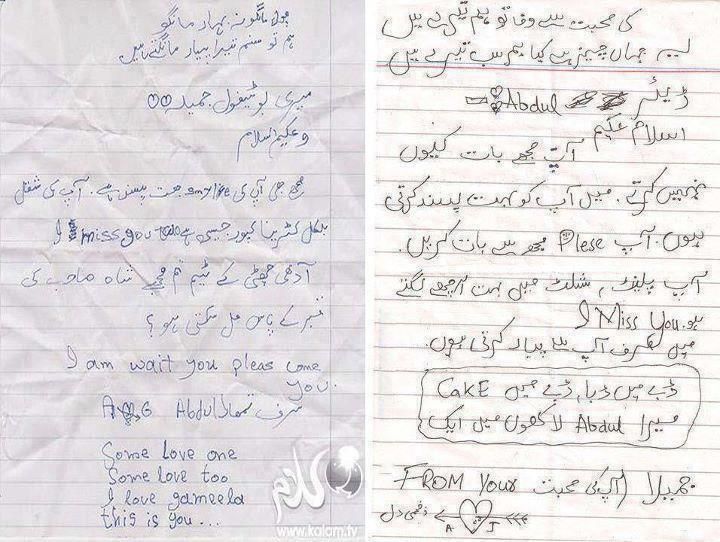 پھول مانگو نہ بہار مانگو
ہم تو صنم تیرا پیار مانگتے ہیں
میری بوٹیفول جمیلہ
وعلیکم اسلام
مجھے جی آپ کی smile بہت پسند ہے. آپ کی شقل
بلکل کٹرینا کپور جیسی ہے I miss you
آدھی چھٹی کے ٹیم تم مجھے شاہ صاحب کی
قبر کے پاس مل سکتی ہو؟
I am wait you pleas come
you.
صرف تمھارا Abdul A G
Some Love one
Some love too
I love gameela
this is you...
کلام
www.kalam.tv
کی محبت سے وفا تو ہم تیرے ہیں
یہ جہاں چیز ہے کیا ہم سب تیرے ہیں
ڈیئر Abdul
اسلام علیکم
آپ مجھے بات کیوں
نہیں کرتے. میں آپ کو بہت پسند کرتی
ہوں. آپ Plese مجھ سے بات کریں.
آپ پلینڑ شلٹ میں بہت اچھے لگتے
ہو. I Miss You
میں صرف آپ سے پیار کرتی ہوں.
ڈبے میں ڈبا, ڈبے میں CaKE
میرا Abdul لاکھوں میں ایک
جمیلا (آپ کی محبت FROM Your
زخمی دل A J